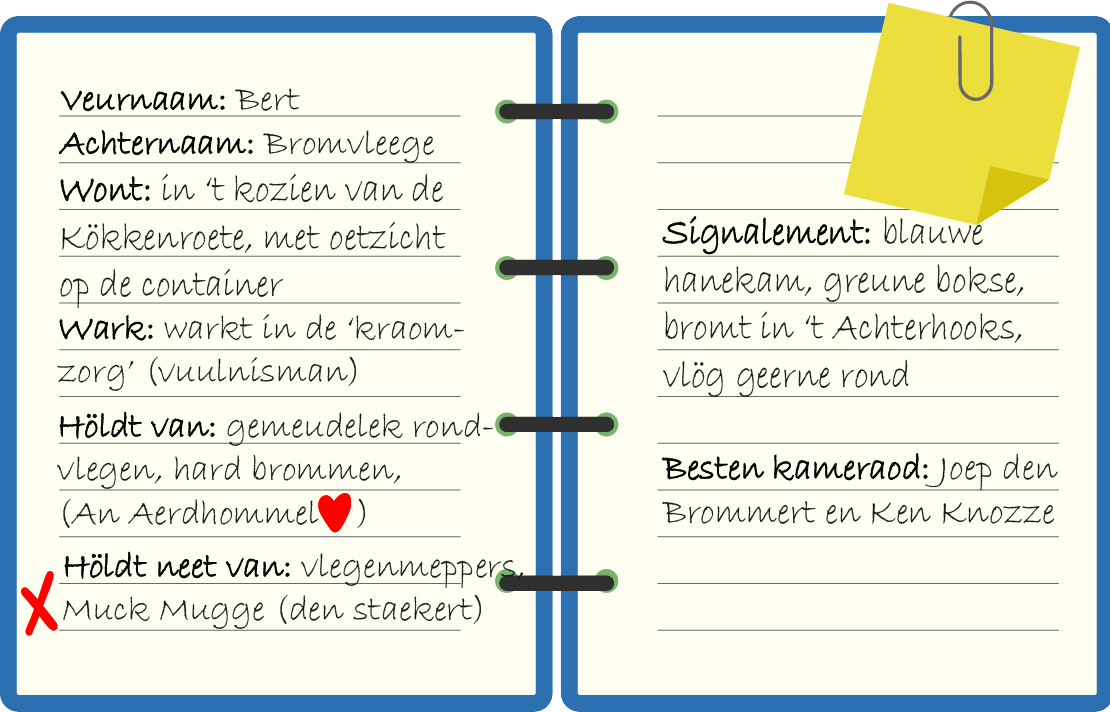 Veurnaam: Bert
Achternaam: Bromvleege
Wont: in ‘t kozien van de
Kökkenroete, met oetzicht
op de container
Wark: warkt in de ‘kraom-
zorg’ (vuulnisman)
Höldt van: gemeudelek rond-
vlegen, hard brommen,
(An Aerdhommel♥)
Höldt neet van: vlegenmeppers,
Muck Mugge (den staekert)
Signalement: blauwe
hanekam, greune bokse,
bromt in ‘t Achterhooks,
vlög geerne rond
Besten kameraod: Joep den
Brommert en Ken Knozze